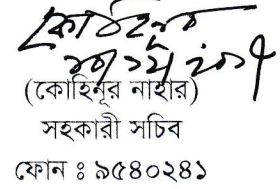 (কোহিনূর নাহার)
সহকারী সচিব
ফোন ঃ ৯৫৪০২৪১